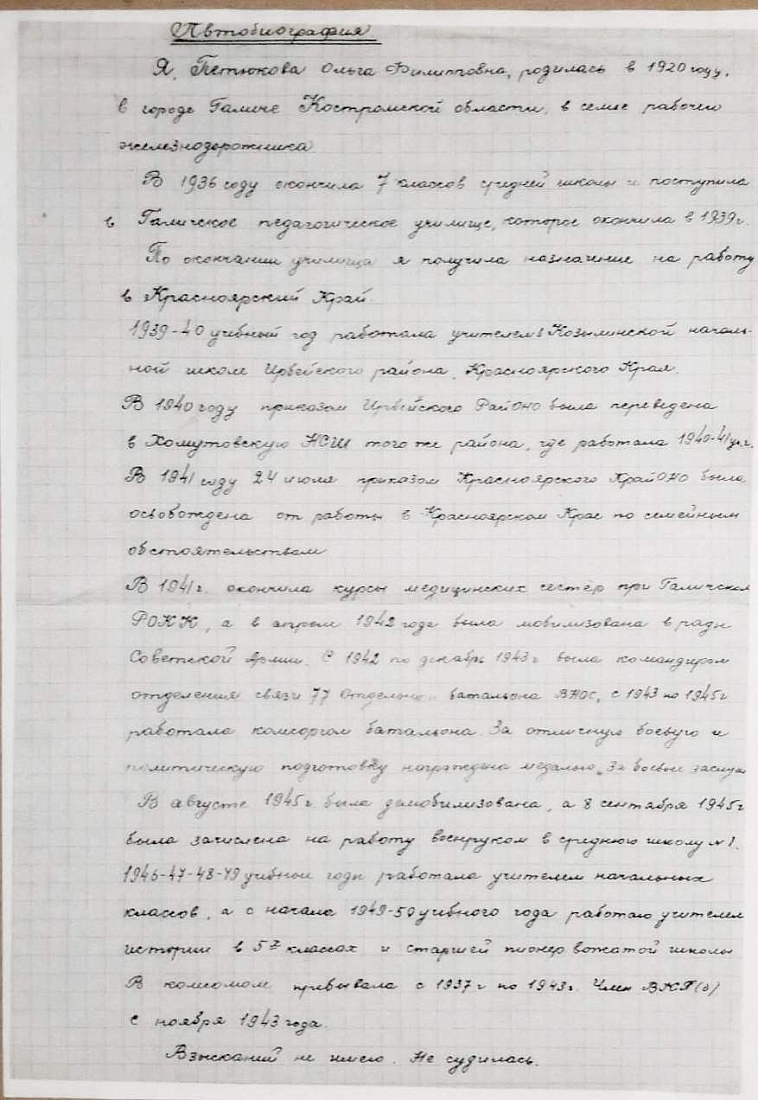 Автобиография
Я, Петюкова Ольга Филипповна, родилась в 1920 году,
в городе Галиче Костромской области, в семье рабочего
железнодорожника.
В 1936 году окончила 7 классов средней школы и поступила
в Галичское педагогическое училище, которое окончила в 1939 г.
По окончании училища я получила назначение на работу
в Красноярский Край.
1939-40 учебный год работала учителем в Козылинской началь-
ной школе Ирбейского района, Красноярского Края.
В 1940 году приказом Ирбейского РайОНО была переведена
в Хомутовскую НСШ того же района, где работала 1940-41 уч.г.
В 1941 году 24 июля приказом Красноярского КрайОНО была
освобождена от работы в Красноярском Крае по семейным
обстоятельствам
В 1941 г. окончила курсы медицинских сестёр при Галичском
РОКК, а в апреле 1942 года была мобилизована в ряды
Советской Армии. С 1942 по декабрь 1943 г была командиром
отделения связи 77 Отдельного батальона ВНОС, с 1943 по 1945 г
работала комсоргом батальона. За отличную боевую и
политическую подготовку награждена медалью „За боевые заслуги
В августе 1945 г. была демобилизована, а 8 сентября 1945 г
была зачислена на работу военруком в среднюю школу № 1.
1946-47-48-49 учебные годы работала учителем начальных
классов, а с начала 1949-50 учебного года работаю учителем
истории в 5х классах и старшей пионервожатой школы
В комсомоле пребывала с 1937 г по 1943 г. Член ВКП(б)
с ноября 1943 года.
Взысканий не имею. Не судилась.